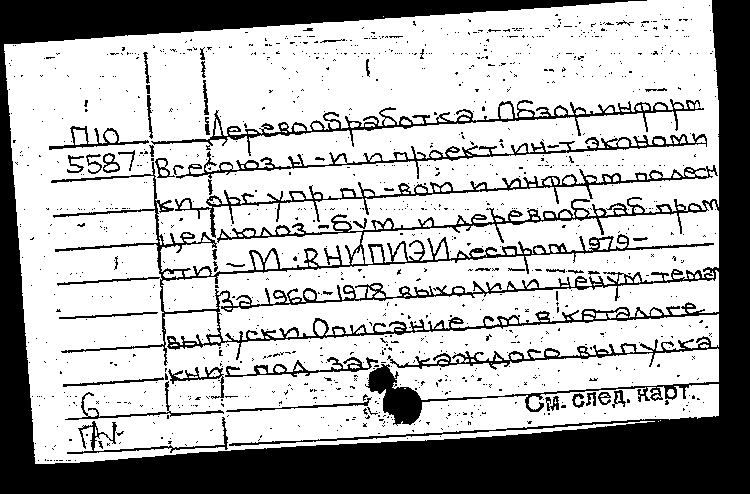 П10 Деревообработка: Обзор. информ
5587 Всесоюз. н.-и. и проект. ин-т экономи
ки, орг. упр. пр-вом и информ. по лесн
целлюлоз.-бум. и деревообраб. пром
сти. – М.: ВНИПИЭИлеспром, 1979–
За 1960–1978 выходили ненум. темат
выпуски. Описание см. в каталоге
книг под заг. каждого выпуска
6
См. след. карт.